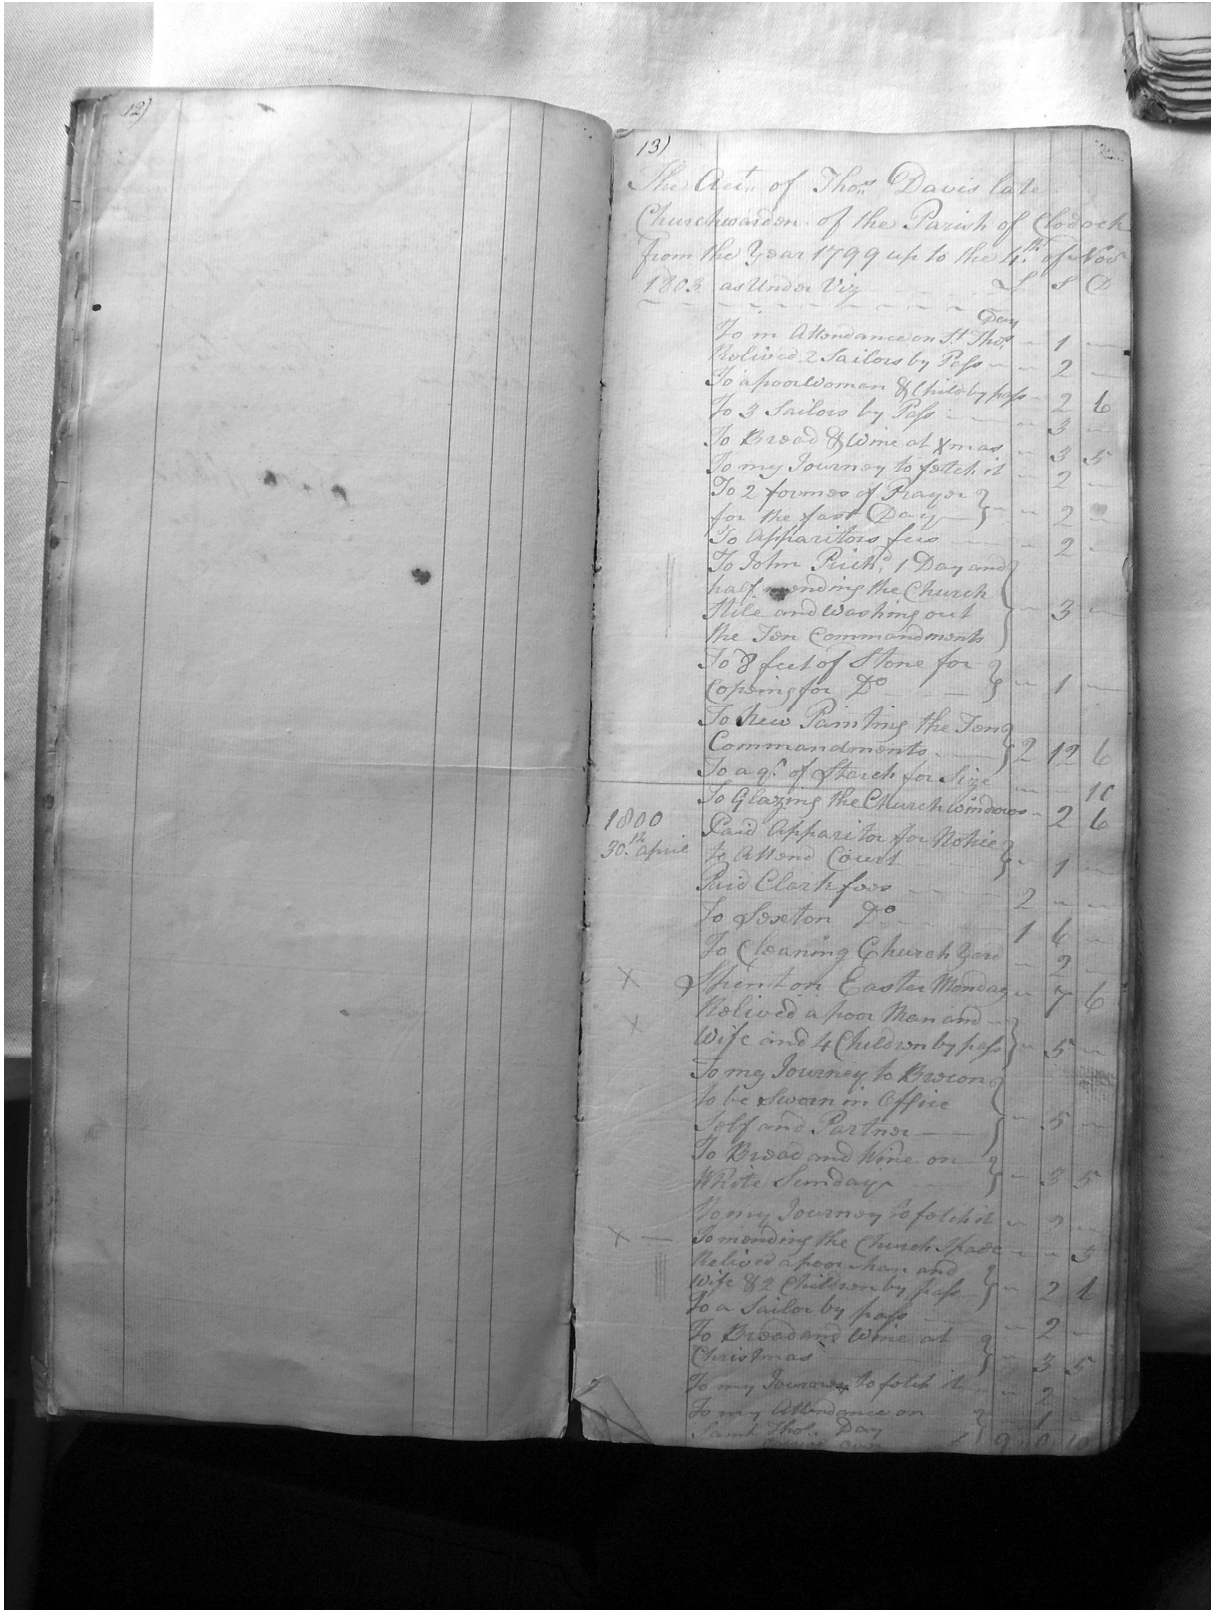 12)
13)
The Acct. of Thos. Davis late
Churchwarden of the Parish of Clodock
from the Year 1799 up to the 4th. of Nov
1803 as Under Viz £ S D
To m Attendance on St. Thos. Day - 1 -
Relived 2 Sailors by Pass - 2 -
To a poor woman & Child by pass - 2 6
To 3 Sailors by Pass - 3 -
To Bread & Wine at Xmas - 3 5
To my Journey to fetch it - 2 -
To 2 formes of Prayer
for the fast Day - 2 -
To Apparitors fees - 2 -
To John Prichd. 1 Day and
half mending the Church
Stile and Washing out - 3 -
the Ten Commandments
To 8 feet of Stone for
Copeing for Do - 1 -
To New Painting the Ten
Commandments 2 12 6
To a qr. of Starch for Size - - 10
To Glazing the Church windows - 2 6
1800
30th. april
Paid Apparitor for Notice
to Attend Court - 1 -
Paid Clark fees 2 - -
To Sexton Do 1 6 -
To Cleaning Church Yard - 2 -
X Spent on Easter Monday - 7 6
X Relived a poor Man and
Wife and 4 Children by pass - 5 -
To my Journey to Brecon
to be Sworn in Office
Self and Partner - 5 -
To Bread and Wine on
White Sunday - 3 5
To my Journey to fetch it - 2 -
X To mending the Church Spade - - 3
Relived a poor Man and
Wife & 2 Children by pass - 2
To a Sailor by pass - 2 -
To Bread and Wine at
Christmas - 3 5
To my Journey to fetch it - 2
To my Attendance on
Saint Thos. Day - 1 -
over 9 10